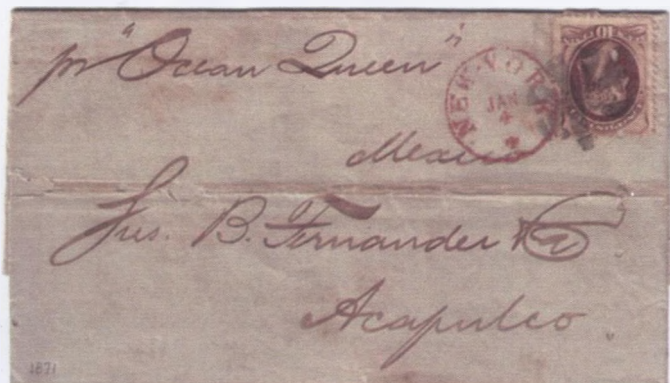 pr "Ocean Queen"
NEW-YORK
JAN
4
10
Mexico
Sres. B. Fernandez y Ca
Acapulco.
1871